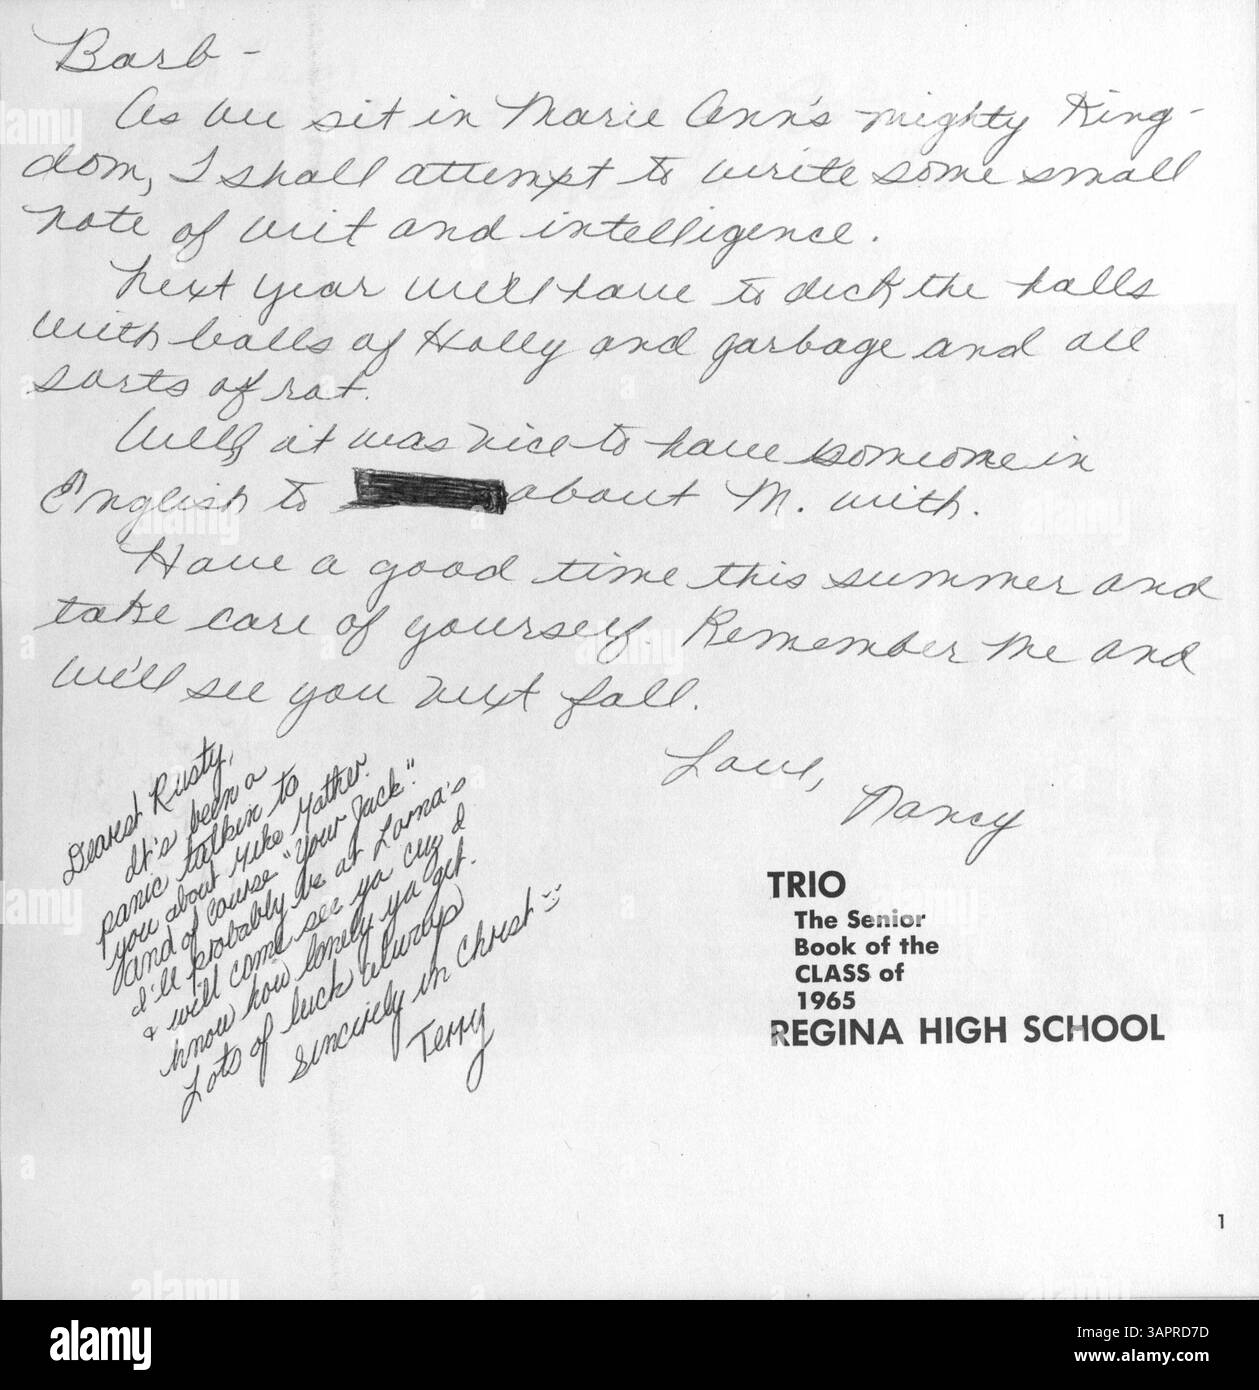 Barb -
As we sit in Marie Ann's mighty King-
dom, I shall attempt to write some small
note of wit and intelligence.
Next year we'll have to deck the halls
with balls of Holly and garbage and all
sorts of rot.
Well, it was nice to have someone in
English to about M. with.
Have a good time this summer and
take care of yourself. Remember me and
we'll see you next fall.
Love,
Nancy
Dearest Rusty,
It's been a
panic talkin to
you about Mike Mather
and of course "Your Jack".
I'll probably be at Lorna's
& will come see ya cuz I
know how lonely ya get.
Lots of luck always
Sincerely in Christ
Terry
TRIO
The Senior
Book of the
CLASS of
1965
REGINA HIGH SCHOOL
1
alamy
Image ID: 3APRD7D
www.alamy.com